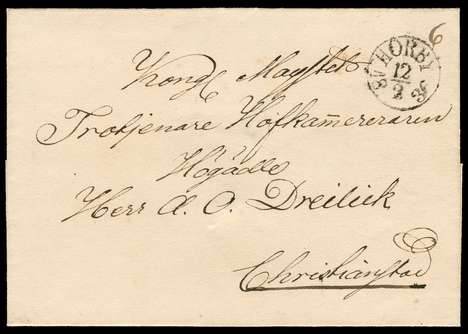 6
HÖRBY
12
2
Kongl Mayts
Trotjenare Hofkam̄ereraren
Högädle
Herr A. O. Dreilick
Christianstad